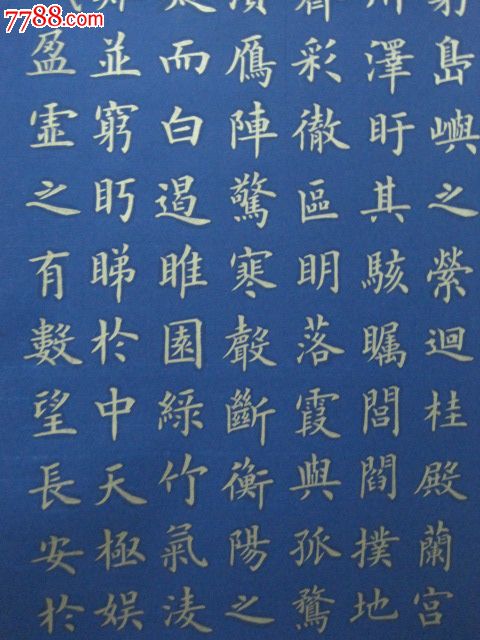 7788.com
島嶼之縈迴桂殿蘭宮
川澤盱其駭矚閭閻撲地
彩徹區明落霞與孤鶩
鴈陣驚寒聲斷衡陽之
而白遏睢園綠竹氣淩
並窮眄睇於中天極娛
盈虛之有數望長安於